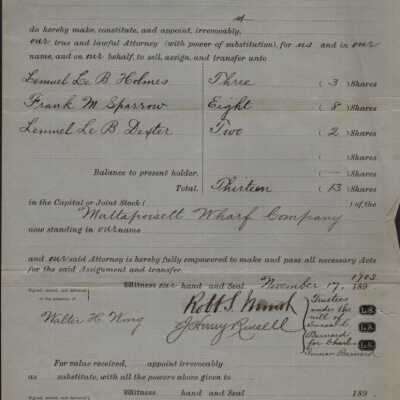 do hereby make, constitute, and appoint, irrevocably,
our true and lawful Attorney (with power of substitution), for us and in our
name, and on our behalf, to sell, assign, and transfer unto
Lemuel Le B. Holmes Three ( 3 ) Shares
Frank M. Sparrow Eight ( 8 ) Shares
Lemuel Le B. Dexter Two ( 2 ) Shares
( ) Shares
Balance to present holder. ( — ) Shares
Total. Thirteen ( 13 ) Shares
in the Capital or Joint Stock ( ) of the
Mattapoisett Wharf Company
now standing in our name
and our said Attorney is hereby fully empowered to make and pass all necessary Acts
for the said Assignment and transfer.
1903
Witness our hand and Seal November 17, 189
Signed, sealed, and delivered
in the presence of
Walter H. Wing
Robt S.
J Henry Russell
Trustees
under the
will of
Barnard
for Charles
Barnard
L.S.
L.S.
L.S.
For value received, appoint irrevocably
as substitute, with all the powers above given to
Witness hand and Seal 189 .
Signed, sealed, and delivered